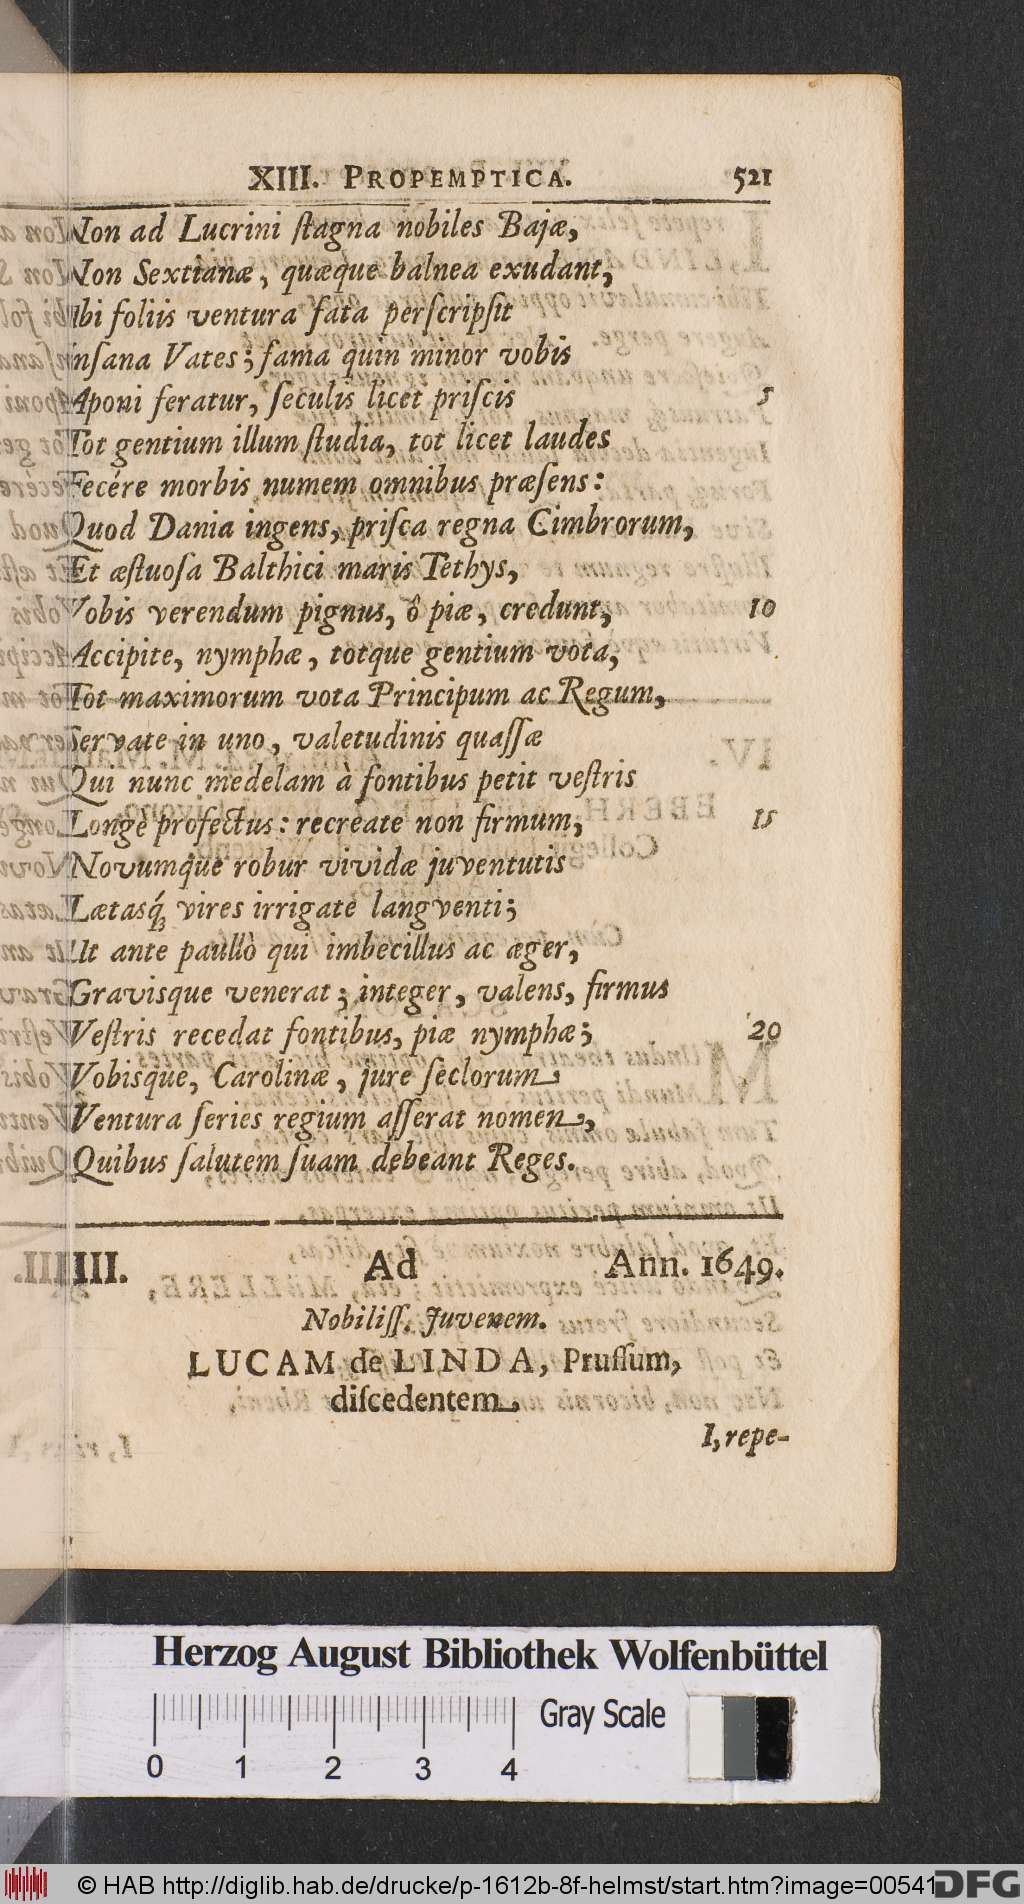 XIII. PROPEMPTICA. 521
Non ad Lucrini ſtagna nobiles Bajæ,
Non Sextianæ, quæque balnea exudant,
Ubi foliis ventura fata perſcripſit
Inſana Vates; fama quin minor vobis
Aponi feratur, ſeculis licet priſcis 5
Tot gentium illum ſtudia, tot licet laudes
Fecére morbis numem omnibus præſens:
Quod Dania ingens, priſca regna Cimbrorum,
Et æſtuoſa Balthici maris Tethys,
Vobis verendum pignus, ô piæ, credunt, 10
Accipite, nymphæ, totque gentium vota,
Tot maximorum vota Principum ac Regum,
Servate in uno, valetudinis quaſſæ
Qui nunc medelam à fontibus petit veſtris
Longè profectus: recreate non firmum, 15
Novumque robur vividæ juventutis
Lætasq́; vires irrigate langventi;
Ut ante paullò qui imbecillus ac æger,
Gravisque venerat; integer, valens, firmus
Veſtris recedat fontibus, piæ nymphæ; 20
Vobisque, Carolinæ, jure ſeclorum
Ventura ſeries regium aſſerat nomen,
Quibus ſalutem ſuam debeant Reges.
III. Ad Ann. 1649.
Nobiliſſ. Juvenem.
LUCAM de LINDA, Pruſſum,
diſcedentem.
I, repe-
Herzog August Bibliothek Wolfenbüttel
Gray Scale
0 1 2 3 4
© HAB http://diglib.hab.de/drucke/p-1612b-8f-helmst/start.htm?image=00541
DFG